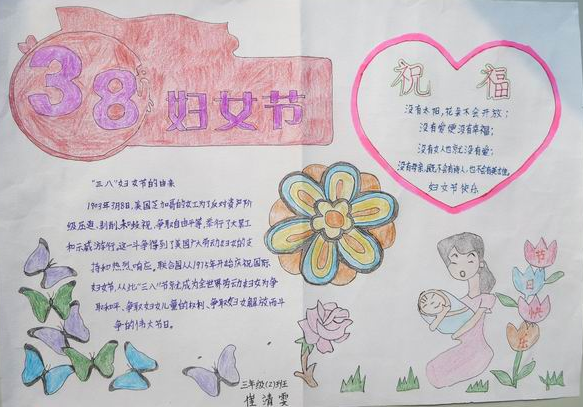 38妇女节
祝福
没有太阳,花朵不会开放;
没有爱便没有幸福;
没有女人也就没有爱;
没有母亲,既不会有诗人,也不会有英雄。
妇女节快乐
"三八"妇女节的由来
1903年3月8日,美国芝加哥的女工为了反对资产阶
级压迫、剥削和歧视,争取自由平等,举行了大罢工
和示威游行,这一斗争得到了美国广大劳动妇女的支
持和热烈响应。联合国从1975年开始庆祝国际
妇女节,从此"三八"节就成为全世界劳动妇女为争
取和平、争取妇女儿童的权利、争取妇女解放而斗
争的伟大节日。
节
日
快
乐
三年级(2)班
崔清雯